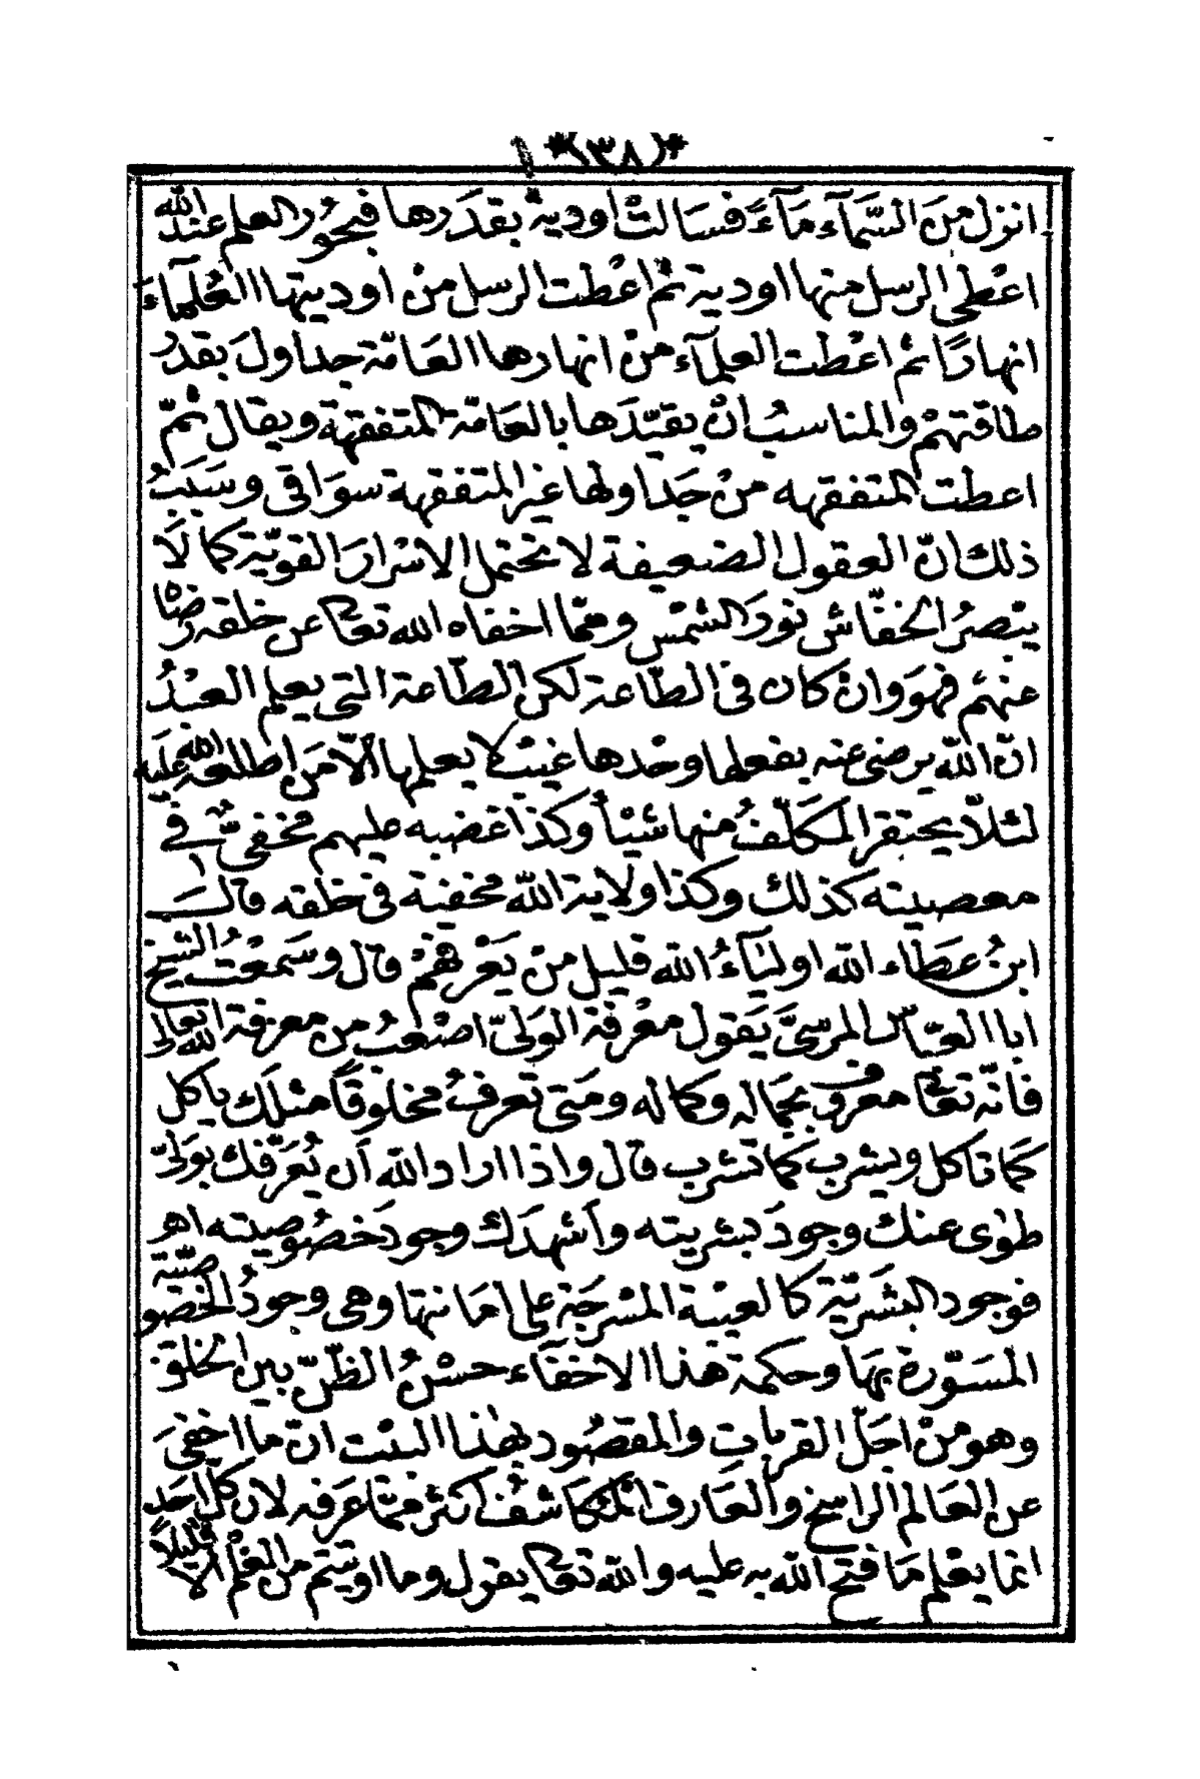 *(٣٨)*
انزل منَ السَّمآء مآءً فسَالتْ اودية بقدَرها فبحورُ العلم عند الله
اعْطى الرسل منها اودية ثم اعْطت الرسل منْ اوديتها العُلمآءَ
انهارًا ثم اعْطت العلمآء منْ انهارها العَامّة جداولَ بقدْر
طاقتهمْ والمناسبُ انْ يقيّدَها بالعَامّة المتفقهة ويقال ثمّ
اعطت المتفقهه منْ جَداولها غيرَ المتفقهة سوَاقى وسَببُ
ذلك انّ العقول الضعيفة لا تحْتمل الاسْرارَ القويّة كما لَا
يبْصرُ الخفّاش نورَ الشمْس وممّا اخفاه الله تعالى عن خلقه رضَاه
عنهمْ فهوَ وانْ كان فى الطّاعة لكن الطّاعة التى يعلم العبْدُ
انّ الله يرضى عنه بفعلها وحْدها غيبٌ لا يعلمها الّا مَن اطلعه الله عليه
لئلّا يحتقر المكلّفُ منها شيْأ وكذا غضبه عليهم مخفىٌّ فى
معصيته كذلك وكذا ولاية الله مخفية فى خلقه قال
ابنُ عَطاء الله اولياءُ الله قليل منْ يَعْرفهمْ قال وسَمعْت الشيْخ
ابا العبّاس المرسىَّ يَقول معْرفة الوَلىّ اصْعبُ من معرفة الله تعالى
فانّه تعَالى معروف بجمَاله وكماله ومَتى تعرفُ مخلوقًا مثلَك يأكل
كمَا تاكل ويشرب كمَا تشرب قال واذا اراد الله أن يُعَرّفك بوَلىّ
طوَى عنك وجودَ بشريته وأشهدَك وجودَ خصُوصيته اهـ
فوجود البشَريّة كالعيبة المشرجَة على امَانتها وهى وجودُ الخصُوصيّة
المسَتّورة بهَا وحكمة هذا الاخفآء حسْنُ الظّنّ بين الخلق
وهو منْ اجَلّ القرباتِ والمقصُود بهٰذا البيْت انّ ما اخفىَ
عن العَالم الراسخ والعَارف المكَاشفُ اكثر ممّا عَرفه لان كلّ احَد
انما يعْلم مَا فتحَ الله به عليه والله تعَالى يقول وما اوتيتم من العلْم الا قليلًا